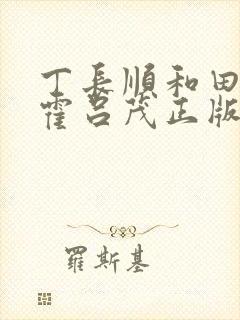 丁長順和田
霍呂茂正版
羅斯基